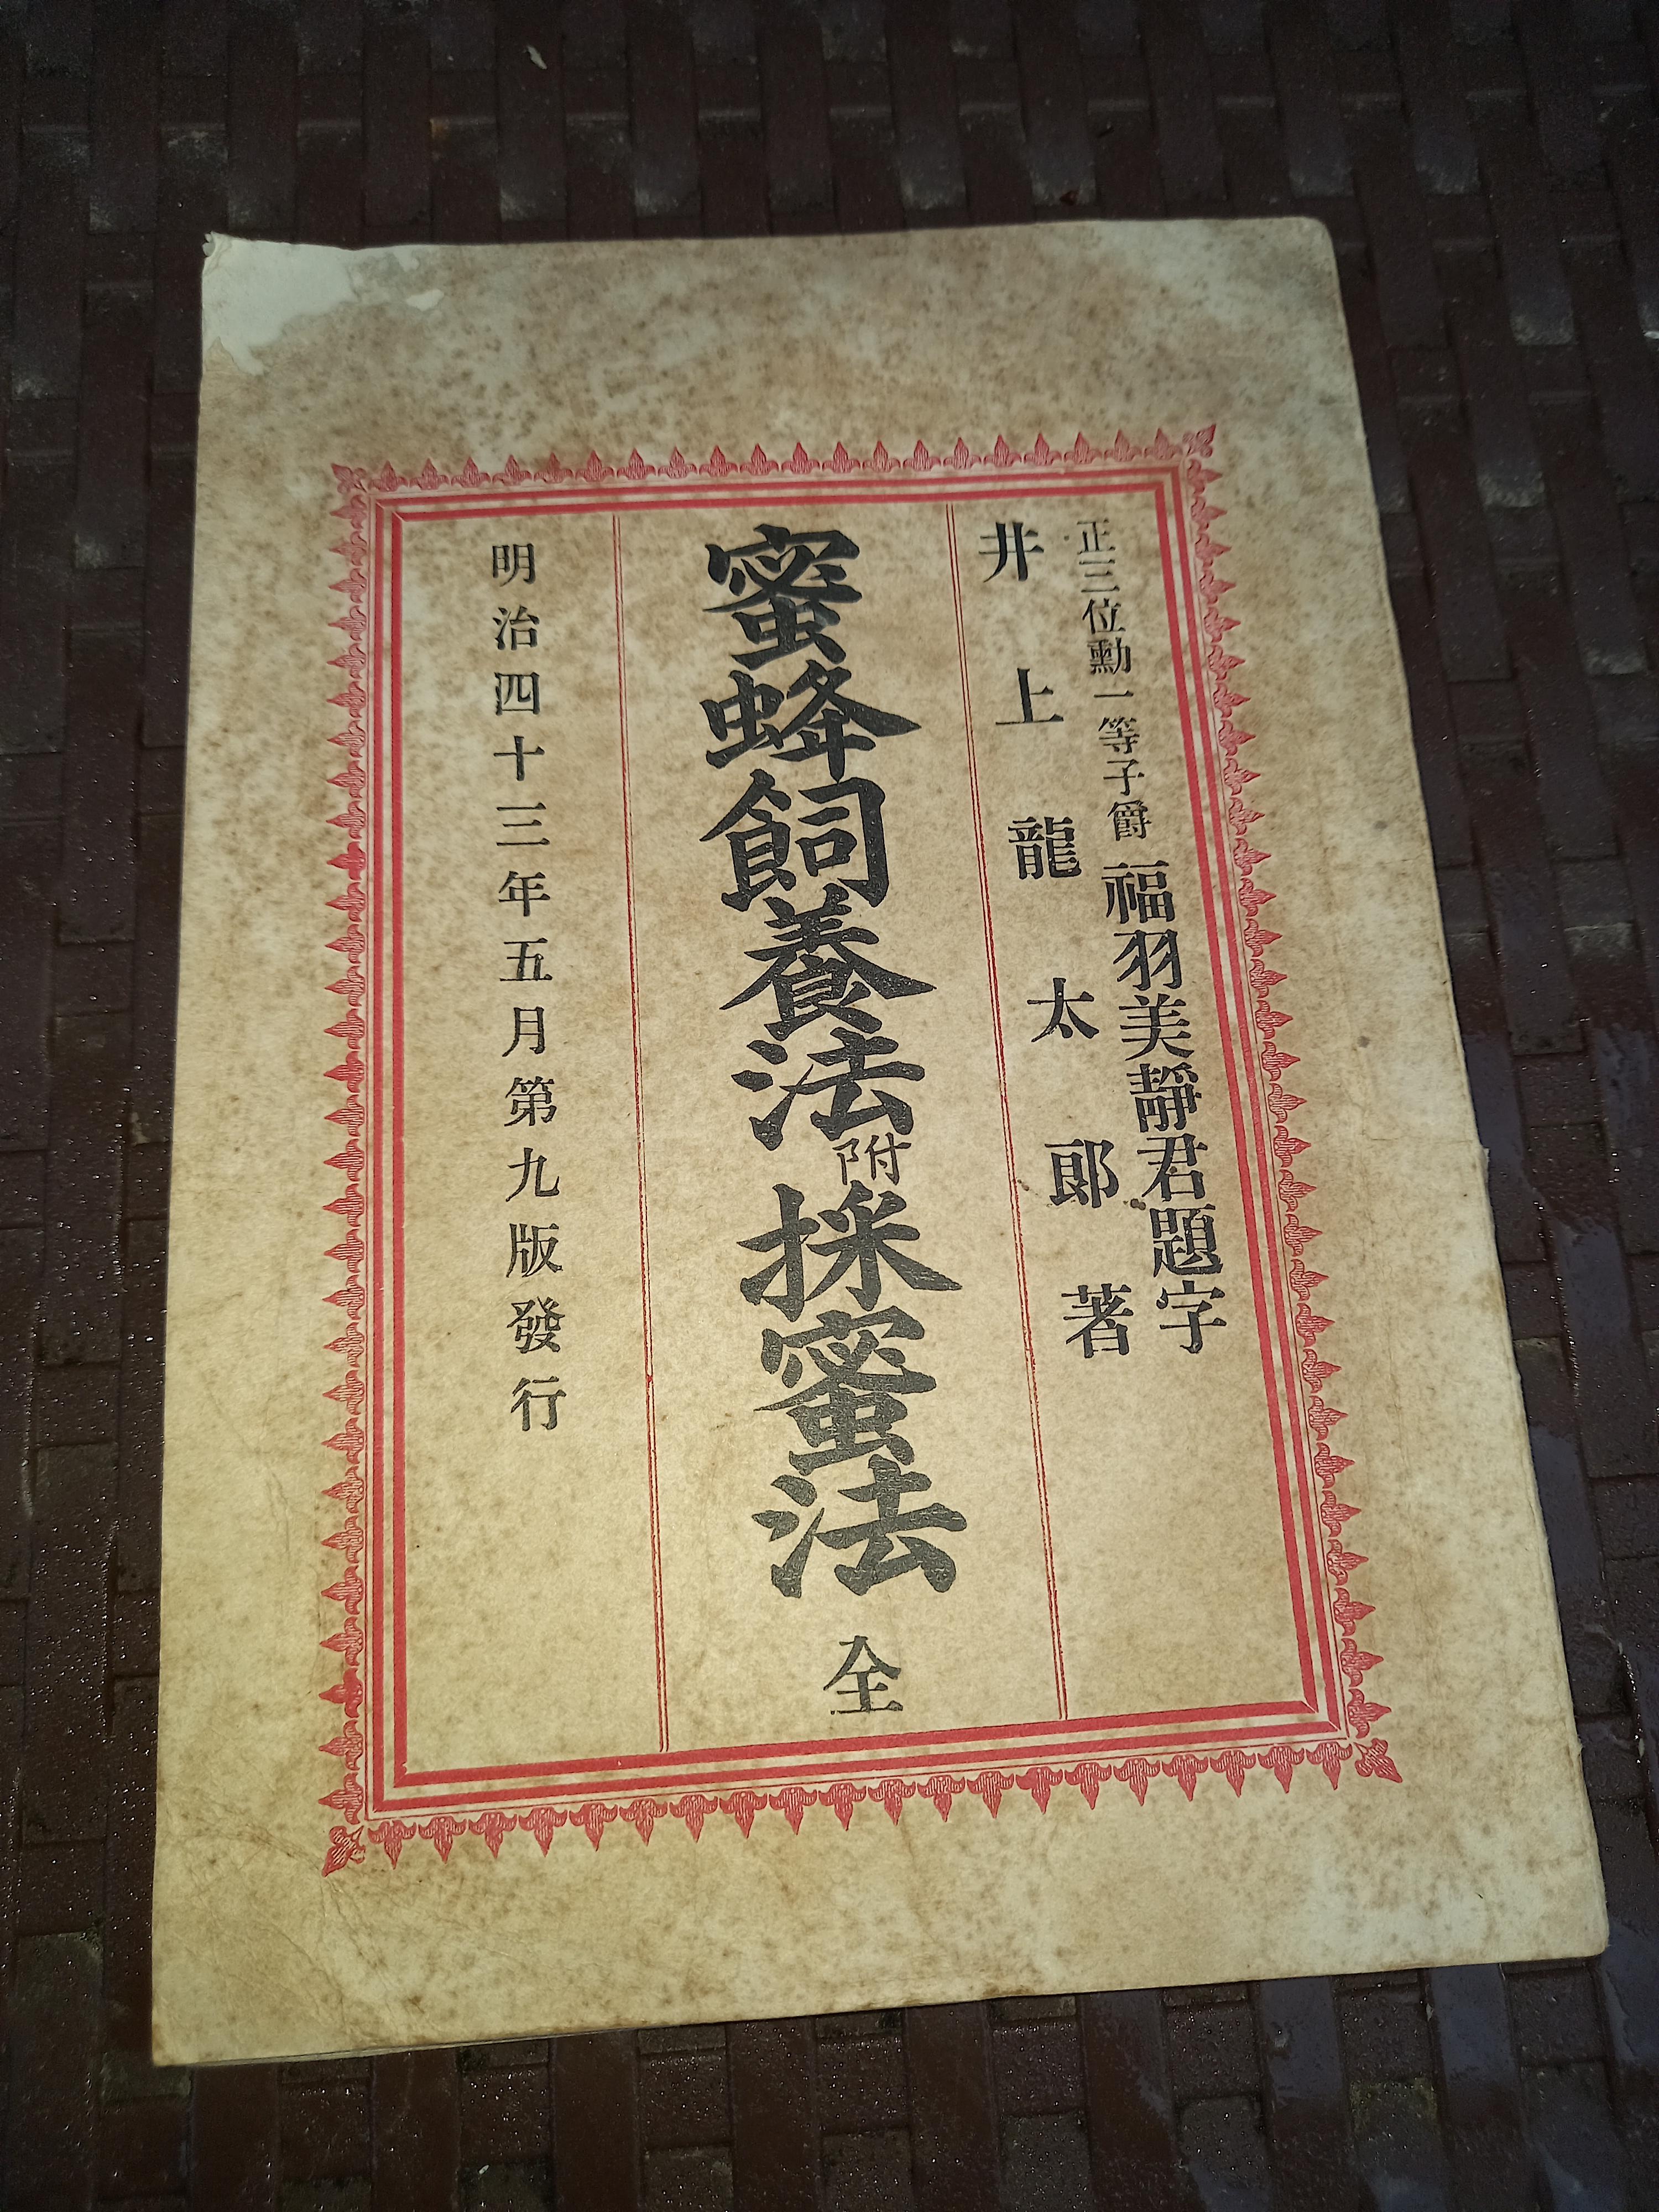 正三位勳一等子爵福羽美靜君題字
井上龍太郎著
蜜蜂飼養法附採蜜法 全
明治四十三年五月第九版發行